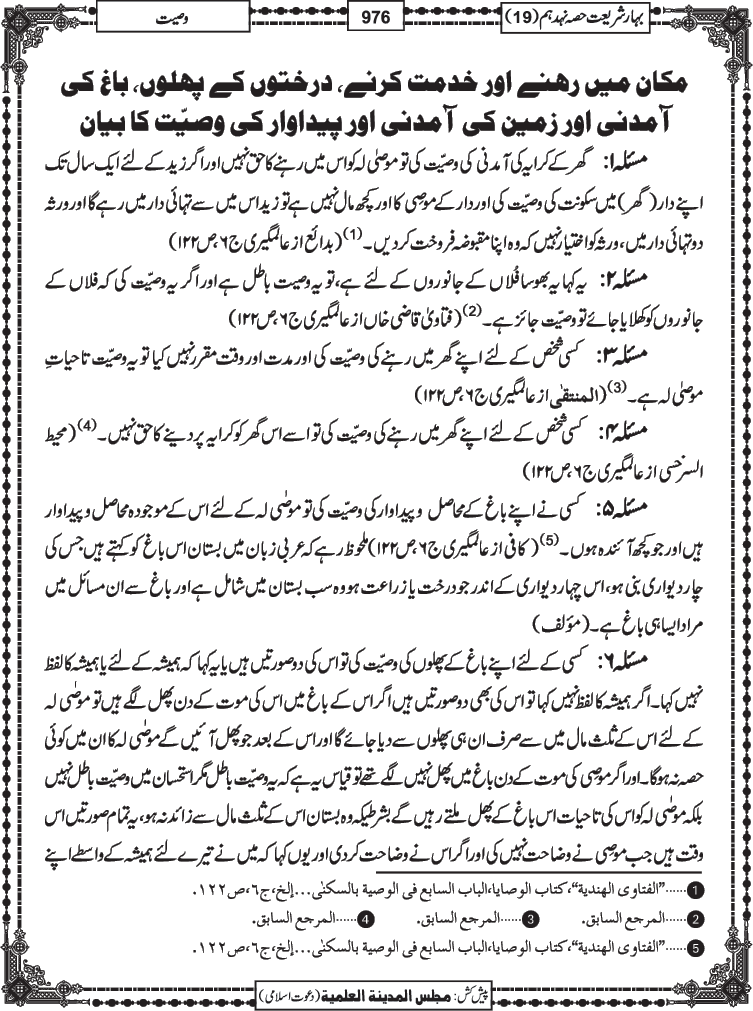 بہار شریعت حصہ نہدہم (19)
976
وصیت
مکان میں رھنے اور خدمت کرنے، درختوں کے پھلوں، باغ کی
آمدنی اور زمین کی آمدنی اور پیداوار کی وصیّت کا بیان
مسئلہ ۱: گھر کے کرایہ کی آمدنی کی وصیّت کی تو موصٰی لہ کو اس میں رہنے کا حق نہیں اور اگر زید کے لئے ایک سال تک
اپنے دار (گھر) میں سکونت کی وصیّت کی اور دار کے موصی کا اور کچھ مال نہیں ہے تو زید اس میں سے تہائی دار میں رہے گا اور ورثہ
دو تہائی دار میں، ورثہ کو اختیار نہیں کہ وہ اپنا مقبوضہ فروخت کردیں۔(1) (بدائع از عالمگیری ج۶،ص۱۲۲)
مسئلہ ۲: یہ کہا یہ بھوسا فُلاں کے جانوروں کے لئے ہے، تو یہ وصیت باطل ہے اور اگر یہ وصیّت کی کہ فلاں کے
جانوروں کو کھلایا جائے تو وصیّت جائز ہے۔(2) (فتاویٰ قاضی خاں از عالمگیری ج۶،ص۱۲۲)
مسئلہ ۳: کسی شخص کے لئے اپنے گھر میں رہنے کی وصیّت کی اور مدت اور وقت مقرر نہیں کیا تو یہ وصیّت تا حیاتِ
موصٰی لہ ہے۔(3) (المنتقٰی از عالمگیری ج۶،ص۱۲۲)
مسئلہ ۴: کسی شخص کے لئے اپنے گھر میں رہنے کی وصیّت کی تو اسے اس گھر کو کرایہ پر دینے کا حق نہیں۔(4) (محیط
السرخسی از عالمگیری ج۶،ص۱۲۲)
مسئلہ ۵: کسی نے اپنے باغ کے محاصل و پیداوار کی وصیّت کی تو موصٰی لہ کے لئے اس کے موجودہ محاصل و پیداوار
ہیں اور جو کچھ آئندہ ہوں۔(5) (کافی از عالمگیری ج۶،ص۱۲۲) ملحوظ رہے کہ عربی زبان میں بستان اس باغ کو کہتے ہیں جس کی
چار دیواری بنی ہو، اس چہار دیواری کے اندر جو درخت یا زراعت ہو وہ سب بستان میں شامل ہے اور باغ سے ان مسائل میں
مراد ایسا ہی باغ ہے۔ (مؤلف)
مسئلہ ۶: کسی کے لئے اپنے باغ کے پھلوں کی وصیّت کی تو اس کی دو صورتیں ہیں یا یہ کہا کہ ہمیشہ کے لئے یا ہمیشہ کا لفظ
نہیں کہا۔ اگر ہمیشہ کا لفظ نہیں کہا تو اس کی بھی دو صورتیں ہیں اگر اس کے باغ میں اس کی موت کے دن پھل لگے ہیں تو موصٰی لہ
کے لئے اس کے ثلث مال میں سے صرف ان ہی پھلوں سے دیا جائے گا اور اس کے بعد جو پھل آئیں گے موصٰی لہ کا ان میں کوئی
حصہ نہ ہوگا۔ اور اگر موصی کی موت کے دن باغ میں پھل نہیں لگے تھے تو قیاس یہ ہے کہ یہ وصیّت باطل مگر استحسان میں وصیّت باطل نہیں
بلکہ موصٰی لہ کو اس کی تا حیات اس باغ کے پھل ملتے رہیں گے بشرطیکہ وہ بستان اس کے ثلث مال سے زائد نہ ہو، یہ تمام صورتیں اس
وقت ہیں جب موصی نے وضاحت نہیں کی اور اگر اس نے وضاحت کردی اور یوں کہا کہ میں نے تیرے لئے ہمیشہ کے واسطے اپنے
1 ......"الفتاوی الھندیة"، کتاب الوصایا، الباب السابع فی الوصیة بالسکنٰی...إلخ، ج٦، ص١٢٢.
2 ......المرجع السابق. 3 ......المرجع السابق. 4 ......المرجع السابق.
5 ......"الفتاوی الھندیة"، کتاب الوصایا، الباب السابع فی الوصیة بالسکنٰی...إلخ، ج٦، ص١٢٢.
پیش کش: مجلس المدینة العلمیة (دعوت اسلامی)